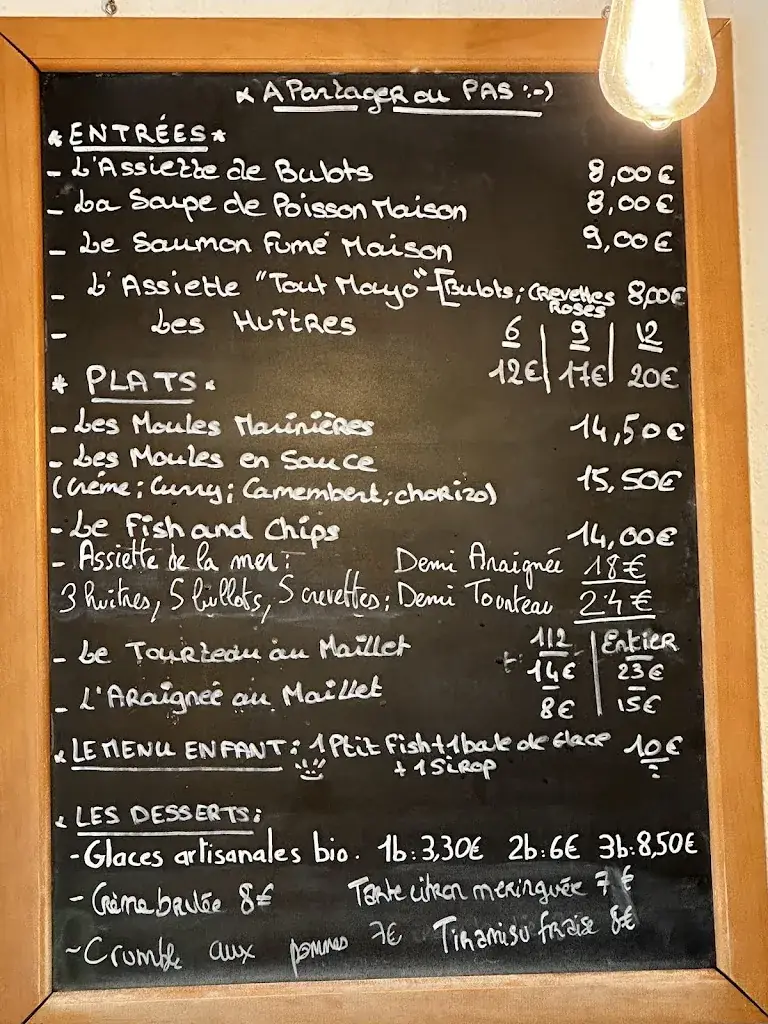 * A Partager ou PAS :-)
* ENTRÉES *
- L'Assiette de Bulots 8,00€
- La Soupe de Poisson Maison 8,00€
- Le Saumon Fumé Maison 9,00€
- L'Assiette "Tout Mayo" [Bulots; Crevettes Roses 8,00€
- Les Huîtres 6 | 9 | 12
12€ | 17€ | 20€
* PLATS *
- Les Moules Marinières 14,50€
- Les Moules en Sauce
(Crème; Curry; Camembert; chorizo) 15,50€
- Le Fish and Chips 14,00€
- Assiette de la mer: Demi Araignée 18€
3 huitres, 5 bullots, 5 crevettes; Demi Tourteau 24€
- Le Tourteau au Maillet 1/2 | Entier
14€ | 23€
- L'Araignée au Maillet 8€ | 15€
* LE MENU ENFANT: 1 Ptit Fish + 1 bale de Glace 10€
+ 1 Sirop
* LES DESSERTS:
- Glaces artisanales bio. 1b: 3,30€ 2b: 6€ 3b: 8,50€
- Crème brulée 8€ Tarte citron meringuée 7€
- Crumble aux pommes 7€ Tiramisu fraise 8€